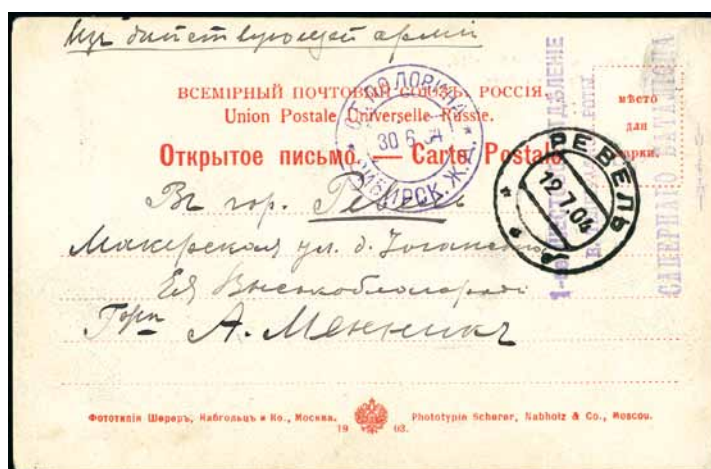 Изъ действующей армiи
ВСЕМIРНЫЙ ПОЧТОВЫЙ СОЮЗЪ. РОССIЯ.
Union Postale Universelle Russie.
Открытое письмо. — Carte Postale.
мѣсто
для
марки.
30 6 04
СИБИРСК. Ж. Д.
РЕВЕЛЬ
12.7.04
САПЕРНАГО БАТАЛIОНА
Въ гор. Ревель
ул. д.
Ея Высокоблагородiю
А.
Фототипiя Шереръ, Набгольцъ и Ко., Москва.
19 03.
Phototypie Scherer, Nabholz & Co., Moscou.